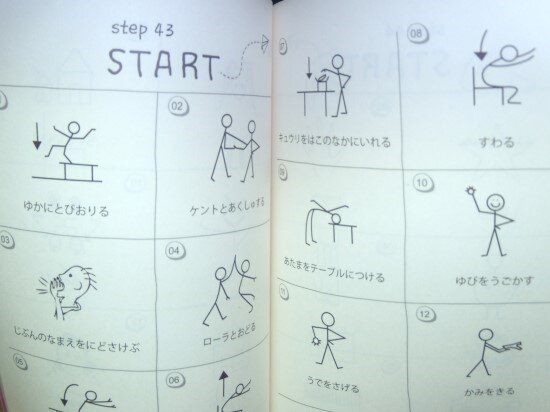 step 43
START
02
ゆかにとびおりる
ケントとあくしゅする
03
04
じぶんのなまえをにどさけぶ
ローラとおどる
05
06
07
08
キュウリをはこのなかにいれる
すわる
09
10
あたまをテーブルにつける
ゆびをうごかす
11
12
うでをさげる
かみをきる